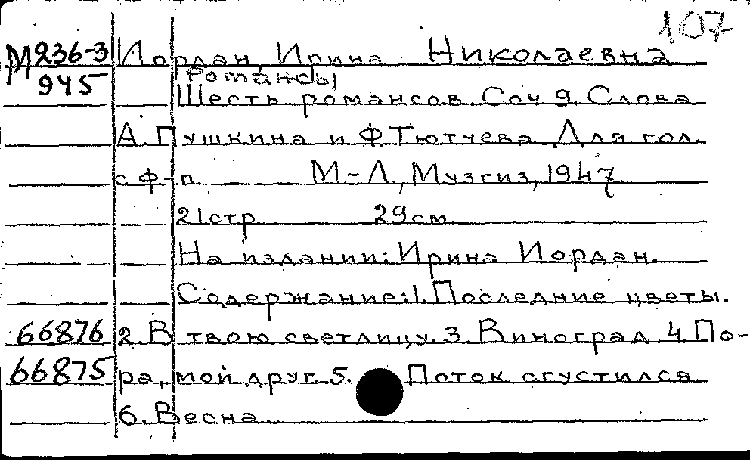 107
М236-3 Иордан, Ирина Николаевна
945 [Романсы]
Шесть романсов. Соч 9. Слова
А. Пушкина и Ф Тютчева. Для гол.
с ф-п. М-Л, Музгиз, 1947
21стр 29см
На издании: Ирина Иордан.
Содержание: 1. Последние цветы.
66876 2. В твою светлицу. 3. Виноград 4. По-
66875 ра, мой друг. 5. Поток сгустился
6. Весна